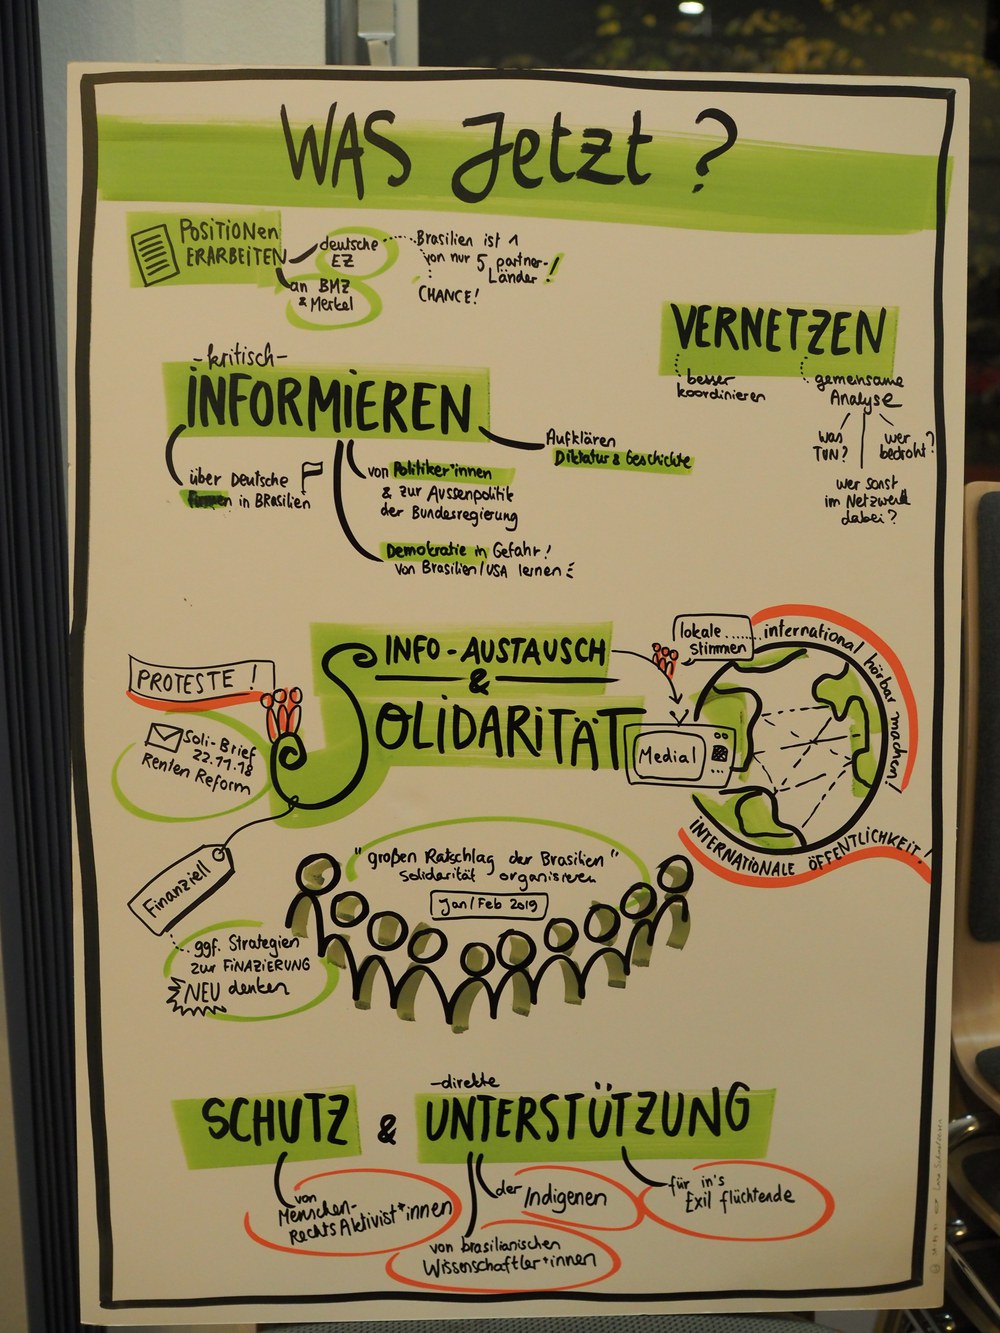 WAS Jetzt?
POSITIONEN
ERARBEITEN
deutsche
EZ
an BMZ
& Merkel
Brasilien ist 1
von nur 5 partner-
Länder!
CHANCE!
VERNETZEN
besser
koordinieren
gemeinsame
Analyse
was
TUN?
wer
bedroht?
wer sonst
im Netzwerk
dabei?
-kritisch-
INFORMIEREN
über Deutsche
Firmen in BRasilien
von Politiker*innen
& zur Aussenpolitik
der Bundesregierung
Aufklären
Diktatur & Geschichte
Demokratie in Gefahr!
von Brasilien/USA lernen
INFO-AUSTAUSCH
&
SOLIDARITÄT
PROTESTE!
Soli-Brief
22.11.18
Renten Reform
lokale ........ international hörbar machen!
Stimmen
Medial
INTERNATIONALE ÖFFENTLICHKEIT!
Finanziell
ggf. Strategien
zur FINAZIERUNG
NEU denken
"großen Ratschlag der Brasilien"
Solidarität organisieren
Jan/Feb 2019
-direkte
SCHUTZ & UNTERSTÜTZUNG
von
Menschen-
rechtsAktivist*innen
der Indigenen
von brasilianischen
Wissenschaftler*innen
für in's
Exil flüchtende